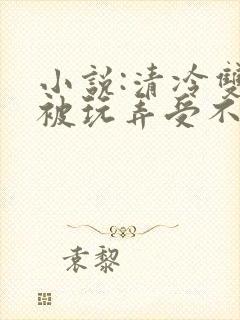 小説:清冷雙
被玩弄受不
袁黎